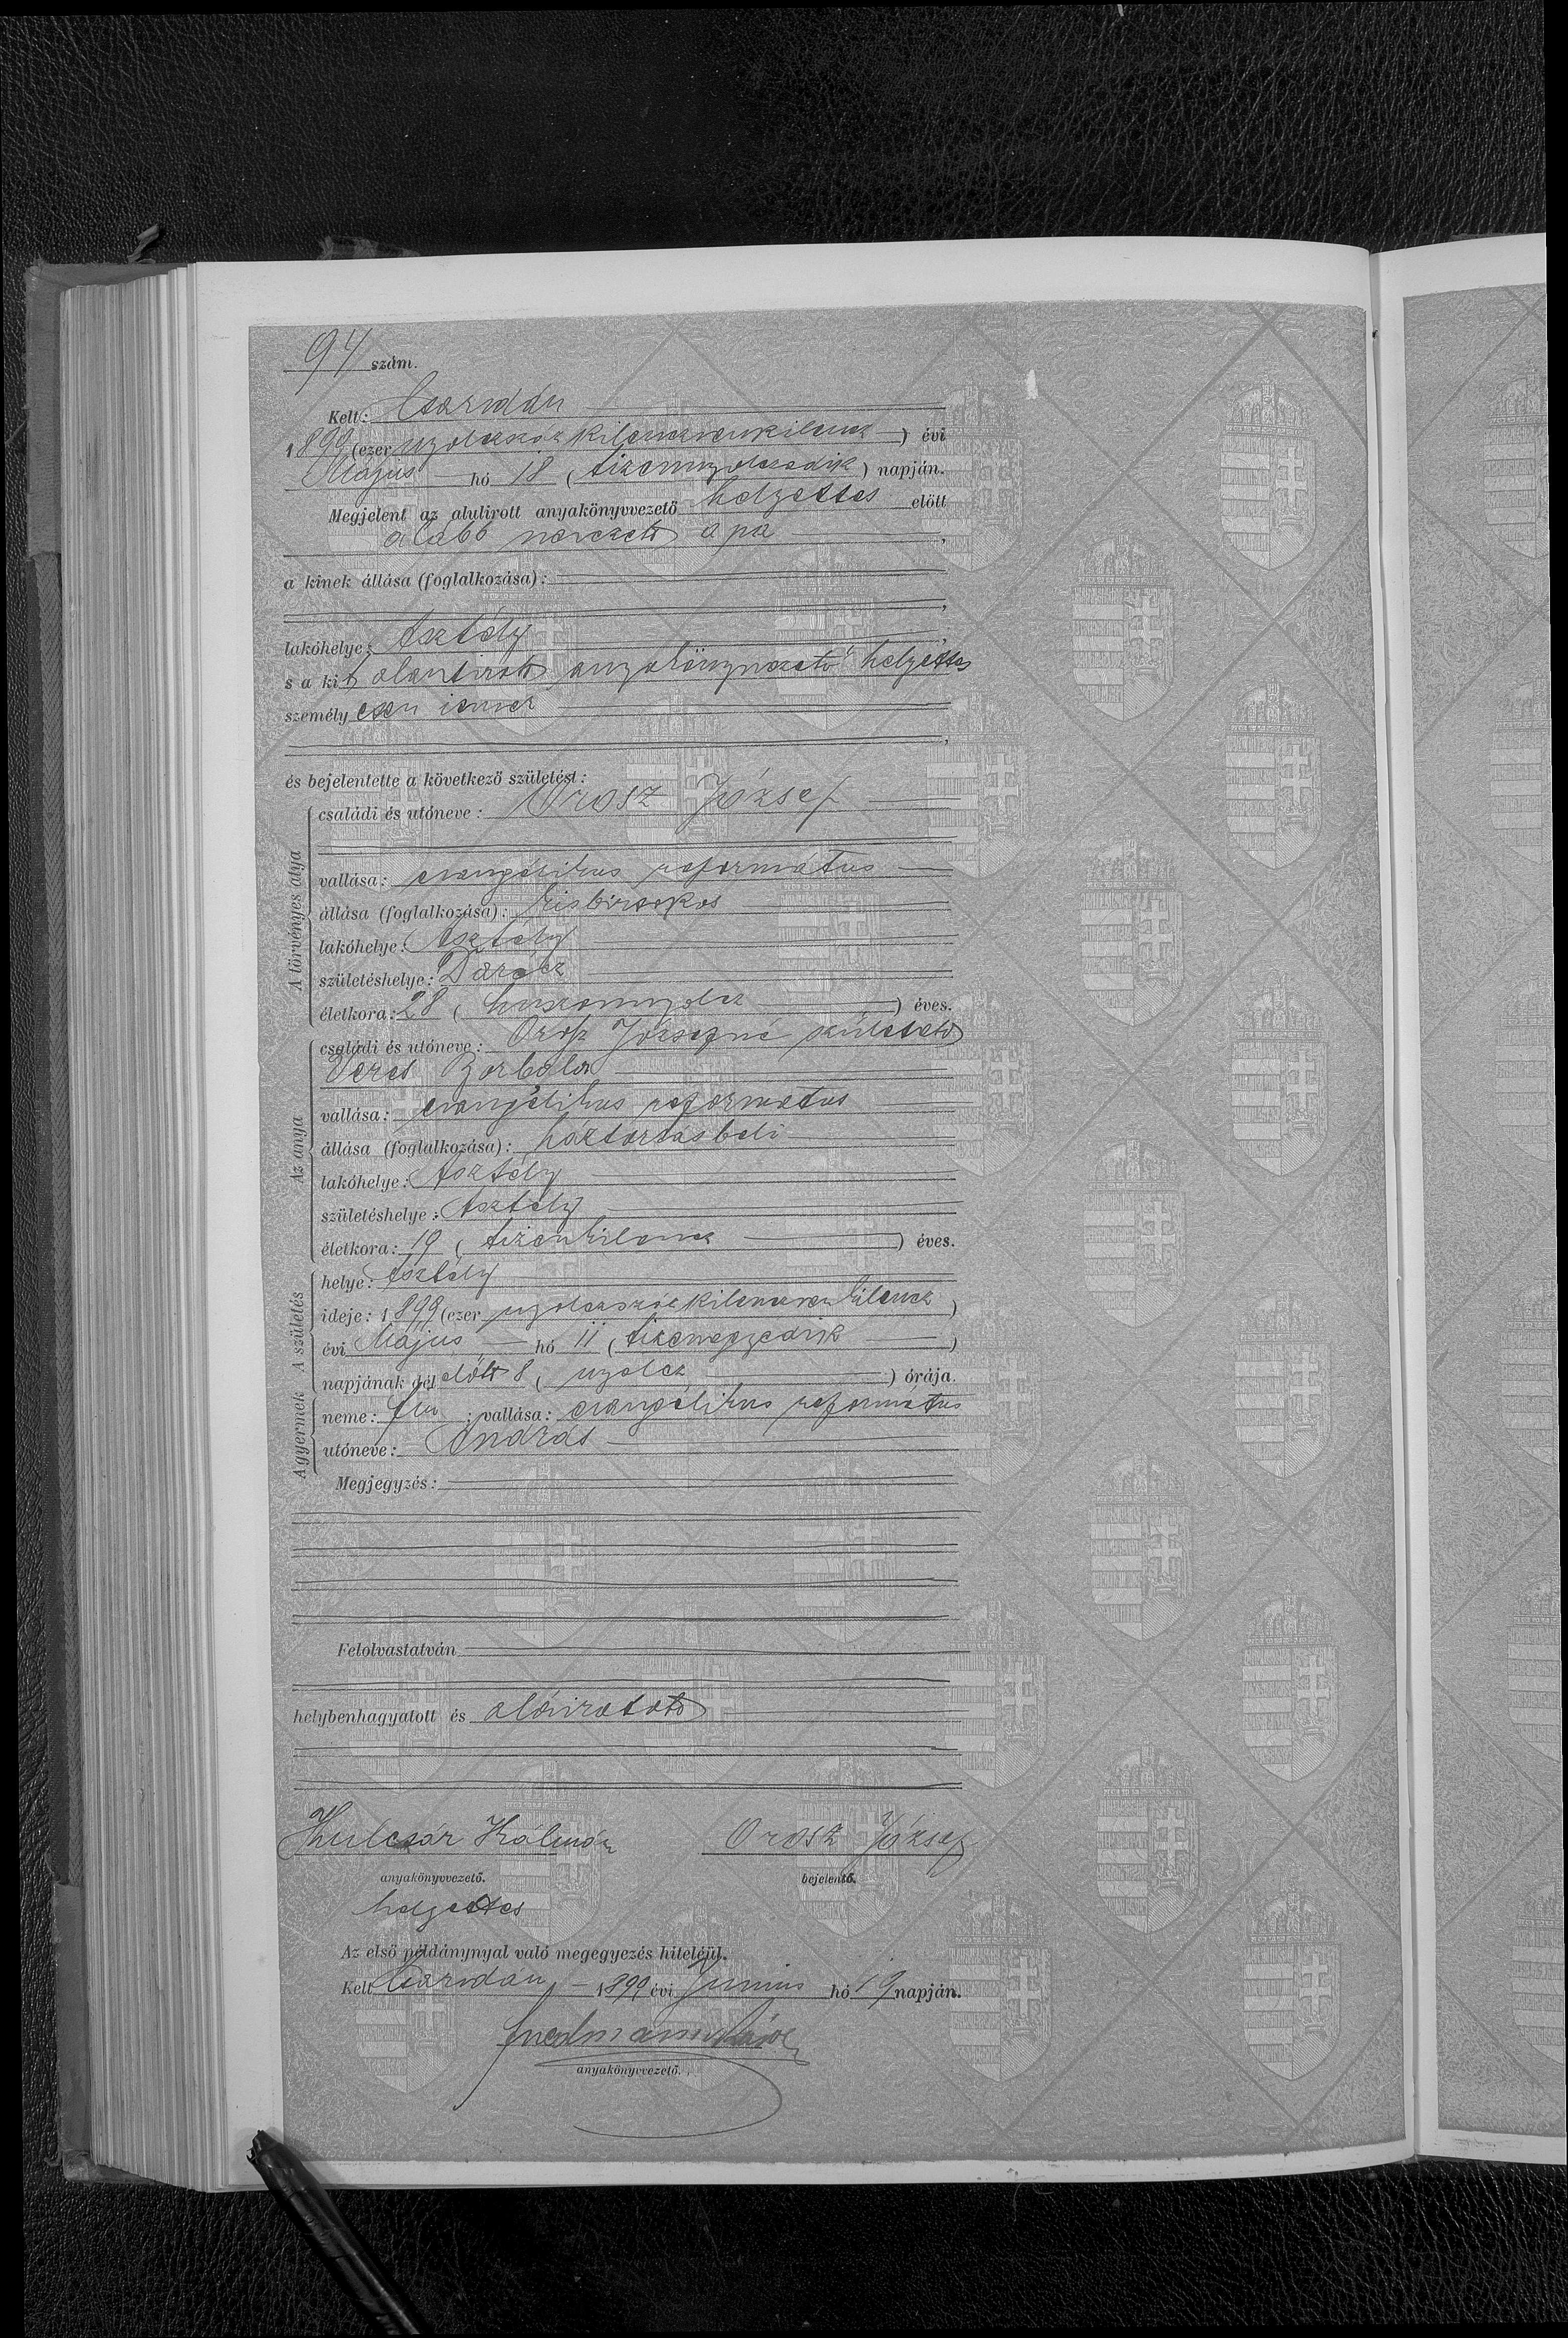 94 szám.
Kelt: Csarodán
1899 (ezer nyolczszáz kilenczvenkilencz) évi
Május hó 18 (tizennyolczadik) napján.
Megjelent az alulirott anyakönyvvezető helyettes előtt
alább nevezett apa,
a kinek állása (foglalkozása):
lakóhelye: Asztély
s a kit alantirott anyakönyvvezető helyettes
személyesen ismer
és bejelentette a következő születést:
A törvényes atya
családi és utóneve: Orosz József
vallása: evangélikus református
állása (foglalkozása): kisbirtokos
lakóhelye: Asztély
születéshelye: Darócz
életkora: 28 (huszonnyolcz) éves.
Az anya
családi és utóneve: Orosz Józsefné született
Veres Borbála
vallása: evangélikus református
állása (foglalkozása): háztartásbeli
lakóhelye: Asztély
születéshelye: Asztély
életkora: 19 (tizenkilencz) éves.
A születés
helye: Asztély
ideje: 1899 (ezer nyolczszáz kilenczvenkilencz)
évi Május hó 11 (tizenegyedik)
napjának dél előtt 8 (nyolcz) órája.
A gyermek
neme: fiu; vallása: evangélikus református
utóneve: András
Megjegyzés:
Felolvastatván
helybenhagyatott és aláiratott
Kulcsár Kálmán Orosz József
anyakönyvvezető. bejelentő.
helyettes
Az első példánynyal való megegyezés hiteléül.
Kelt Csarodán, 1899 évi Junius hó 19 napján.
anyakönyvvezető.